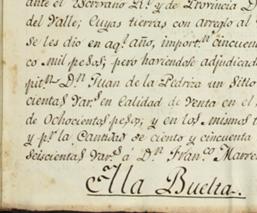 ante el Escrivano R.l y de Provincia D
del Valle; Cuyas tierras con arreglo al
se les dio en aq.l año, import.n cincuen
co mil pesos; pero haviendose adjudicad
pit.n D.n Juan de la Pedriza un sitio
cientas Var.s en Calidad de Venta en el
de Ochocientos pesos; y en los mismos t
y p.r la Cantidad de ciento y cincuenta
seiscientas Var.s á D.n Fran.co Marre
A la Buelta.